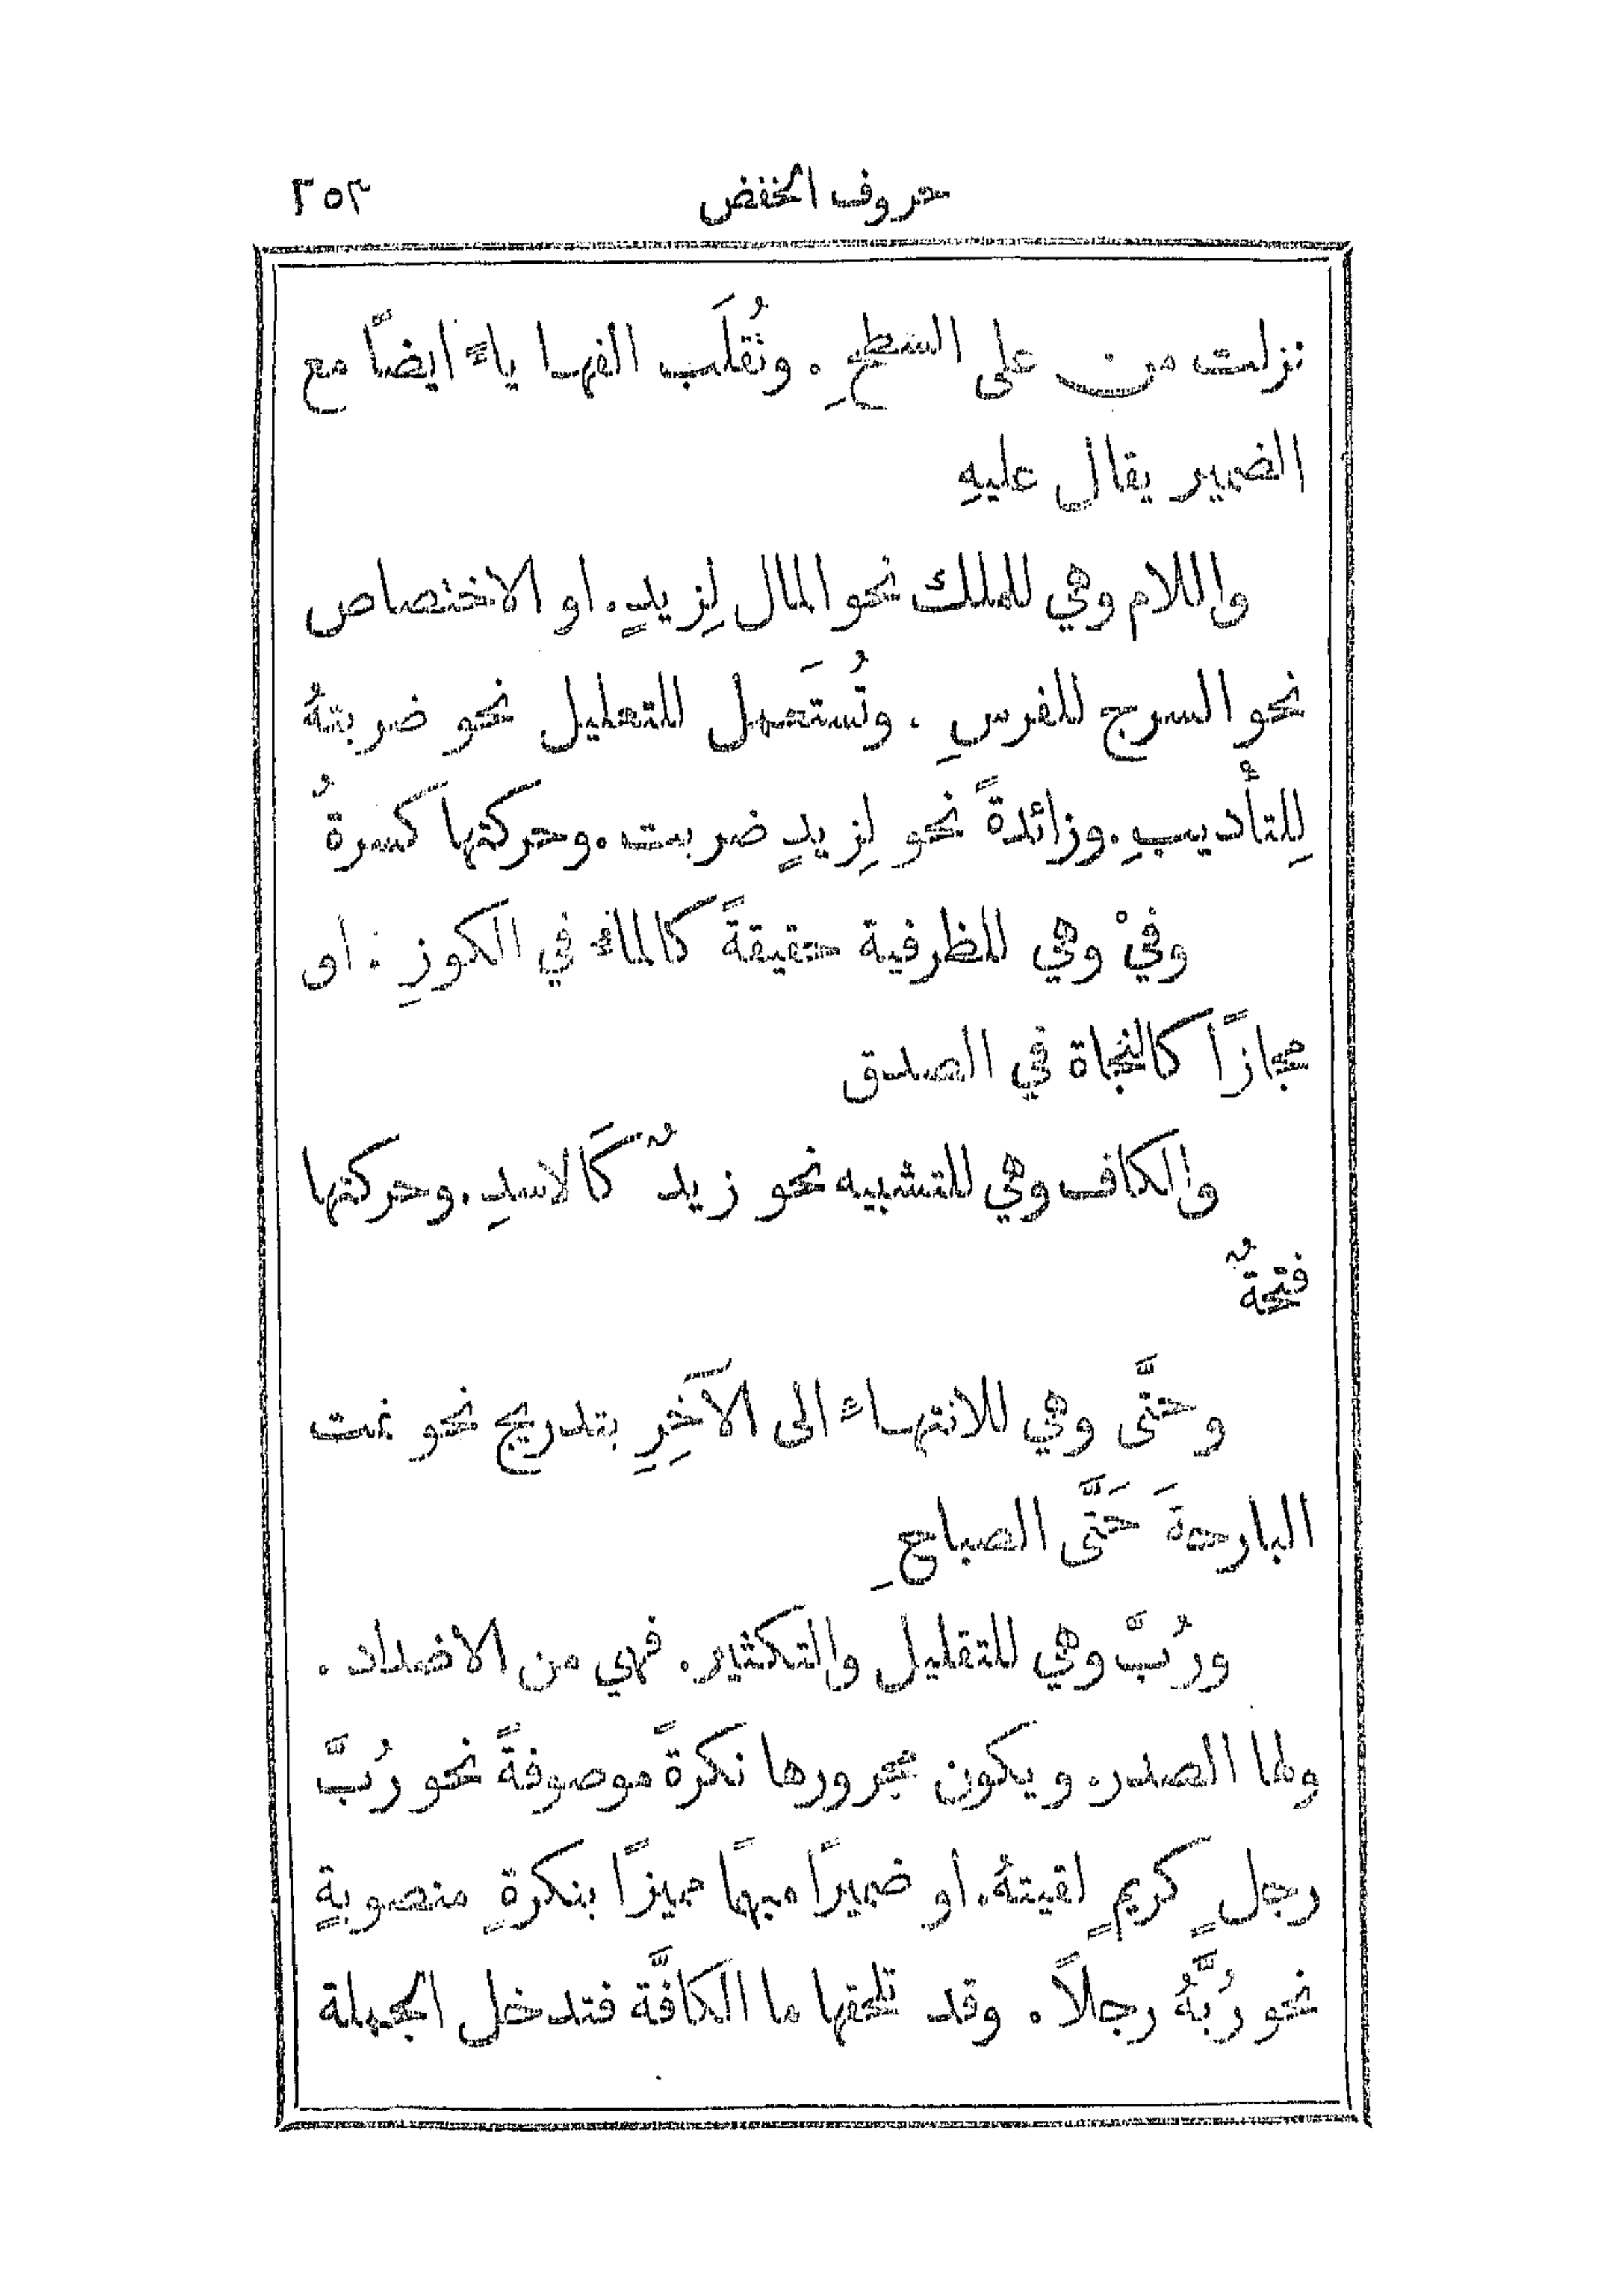 حروف الخفض ٢٥٣
نزلت من على السَطحِ. وتُقلَب الفها ياءً ايضاً مع
الضمير يقال عليهِ
واللام وهي للملك نحو المال لِزيدٍ. او الاختصاص
نحو السرج للفرسِ. وتُستَعمل للتعليل نحو ضربتهُ
لِلتأديبِ. وزائدةً نحو لِزيدٍ ضربت. وحركتها كسرةٌ
وفيْ وهي للظرفية حقيقةً كالماءِ في الكوزِ. او
مجازًا كالنجاة في الصدق
والكاف وهي للتشبيه نحو زيدٌ كَالاسدِ. وحركتها
فتحةٌ
وحتَّى وهي للانتهاءِ الى الآخِرِ بتدريج نحو نمت
البارحةَ حَتَّى الصباحِ
ورُبَّ وهي للتقليل والتكثير. فهي من الاضداد.
ولها الصدر. ويكون مجرورها نكرةً موصوفةً نحو رُبَّ
رجلٍ كريمٍ لقيتهُ. او ضميرًا مبهمًا مميزًا بنكرةٍ منصوبةٍ
نحو رُبَّهُ رجلاً. وقد تلحقها ما الكافَّة فتدخل الجملة